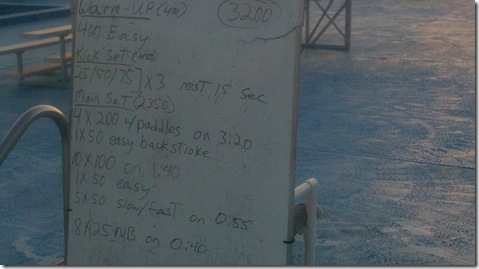 Warm-UP (400)
3200
400 Easy
Kick Set (450)
25/50/75] X3 rest 15 sec
Main Set (2350)
4 X 200 w/paddles on 3:20
1X50 easy backstroke
10X100 on 1:40
1X50 easy
5X50 slow/fast on 0:55
8X25 NB on 0:40